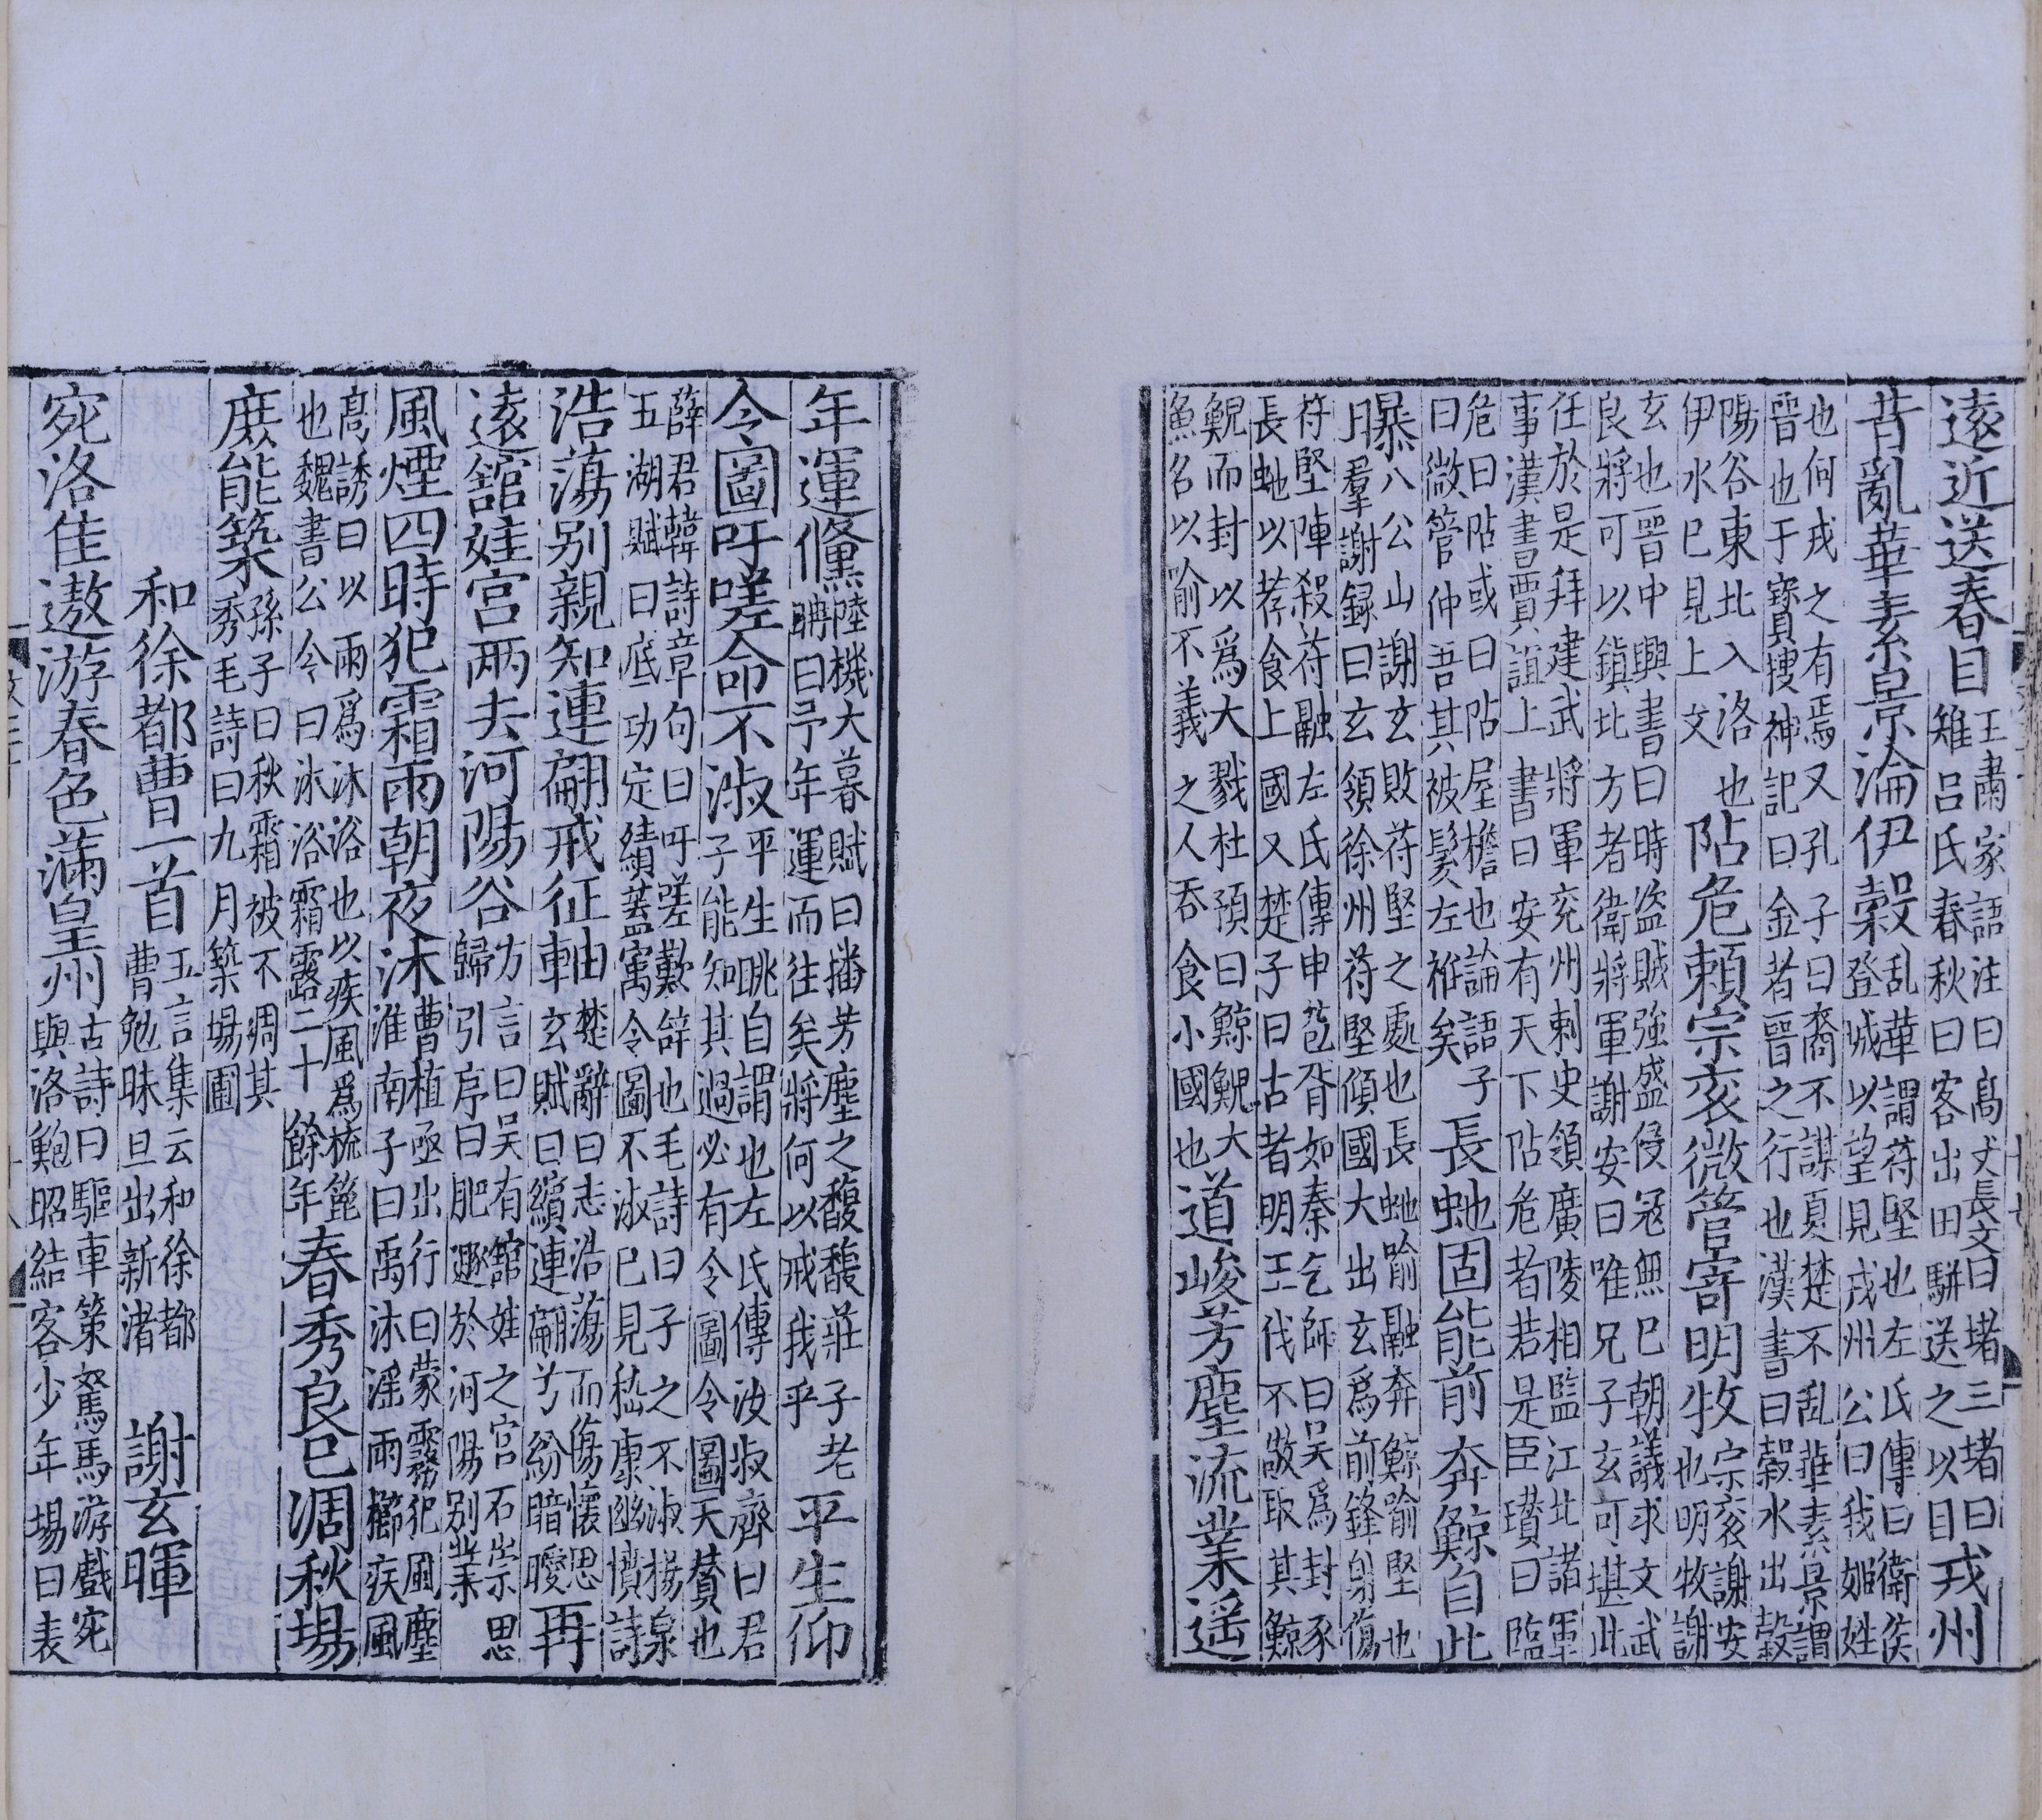 遠近送春目王肅家語注曰高丈長丈曰堵三堵曰雉呂氏春秋曰客出田駢送之以目戎州
昔亂華素景淪伊穀乱華謂苻堅也左氏傳曰衛侯登城以望見戎州公曰我姬姓
也何戎之有焉又孔子曰裔不謀夏楚不乱華素景謂晉也于寶搜神記曰金者晉之行也漢書曰穀水出穀
陽谷東北入洛也伊水已見上文阽危賴宗衮微管寄明牧宗衮謝安也明牧謝
玄也晉中興書曰時盜賊強盛侵冦無已朝議求文武良將可以鎮北方者衛將軍謝安曰唯兄子玄可堪此
任於是拜建武將軍兖州刺史領廣陵相監江北諸軍事漢書賈誼上書曰安有天下阽危者若是臣瓚曰臨
危曰阽或曰阽屋檐也論語子曰微管仲吾其被髮左袵矣長虵固能前奔鯨自此
曝八公山謝玄敗苻堅之處也長虵喻融奔鯨喻堅也月羣謝録曰玄領徐州苻堅傾國大出玄爲前鋒射傷
苻堅陣殺苻融左氏傳申苞胥如秦乞師曰吳爲封豕長虵以荐食上國又楚子曰古者明王伐不敬取其鯨
鯢而封以爲大戮杜預曰鯨鯢大魚名以喻不義之人吞食小國也道峻芳塵流業遥
年運儵陸機大暮賦曰播芳塵之馥馥莊子老聃曰予年運而往矣將何以戒我乎平生仰
令圖吁嗟命不淑平生眺自謂也左氏傳汝叔齊曰君子能知其過必有令圖令圖天賛也
薛君韓詩章句曰吁嗟歎辝也毛詩曰子之不淑楊泉五湖賦曰底功定績蓋寓令圖不淑已見嵇康幽憤詩
浩蕩别親知連翩戒征軸楚辭曰志浩蕩而傷懷思玄賦曰繽連翩兮紛暗曖再
遠舘娃宮兩去河陽谷方言曰吴有舘娃之宮石崇思歸引序曰肥遯於河陽别業
風煙四時犯霜雨朝夜沐曹植亟出行曰蒙霧犯風塵淮南子曰禹沐滛雨櫛疾風
高誘曰以雨爲沐浴也以疾風爲梳篦也魏書公令曰沐浴霜露二十餘年春秀良已凋秋場
庶能築孫子曰秋霜被不凋其秀毛詩曰九月築場圃
和徐都曹一首五言集云和徐都曹勉昧旦出新渚謝玄暉
宛洛佳遨游春色滿皇州古詩曰驅車策駑馬游戲宛與洛鮑昭結客少年場曰表